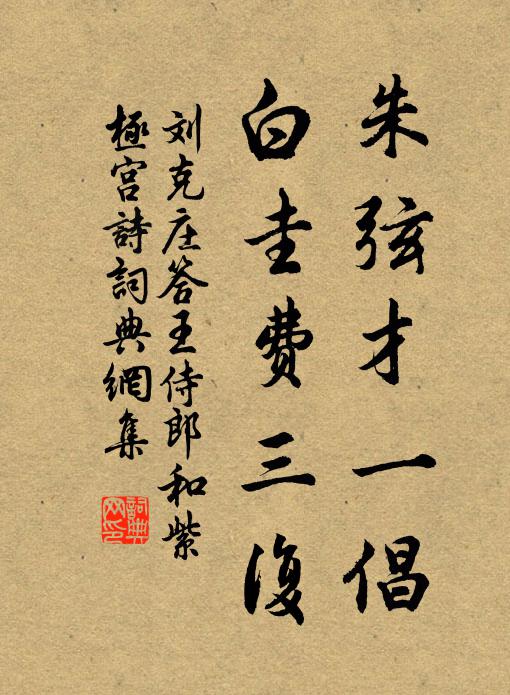 朱弦才一倡
白圭费三復
刘克庄答王侍郎和紫
極宫詩詞典網集
詞典
网印